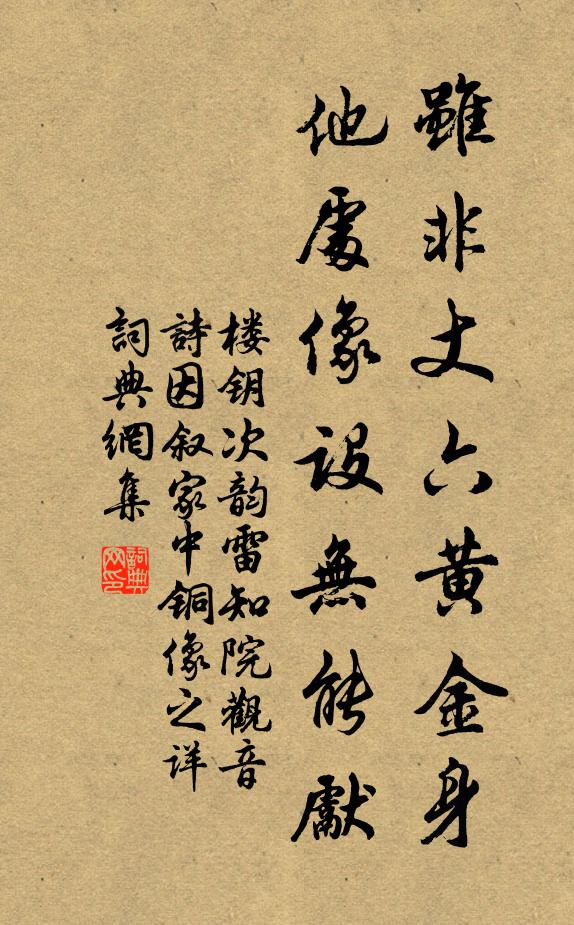 雖非丈六黃金身
他處像設無能獻
楼钥次韵雷知院觀音
詩因叙家中銅像之详
詞典網集
詞典
网印